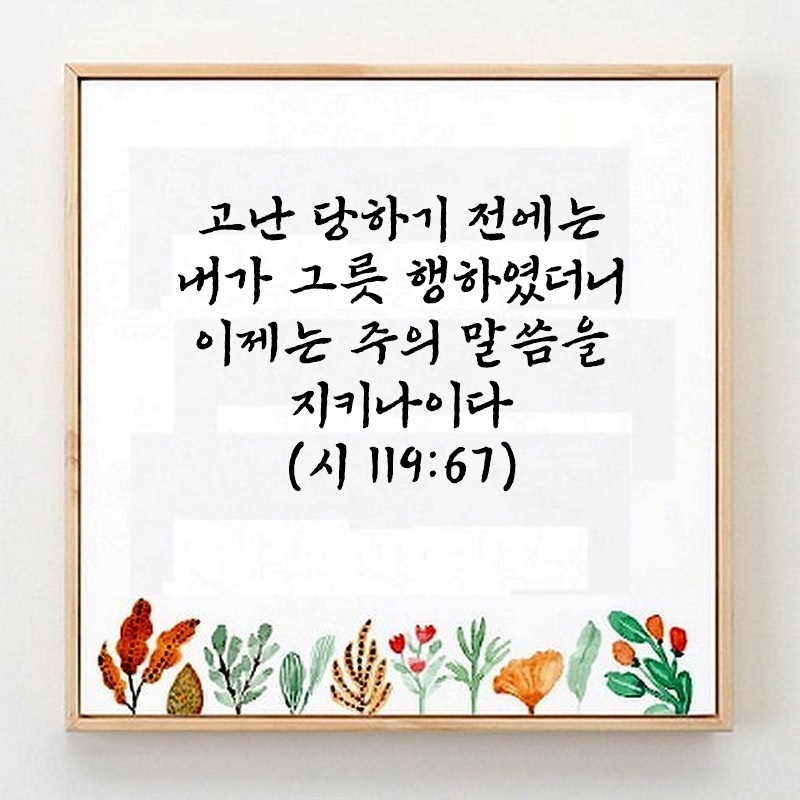 고난 당하기 전에는
내가 그릇 행하였더니
이제는 주의 말씀을
지키나이다
(시 119:67)